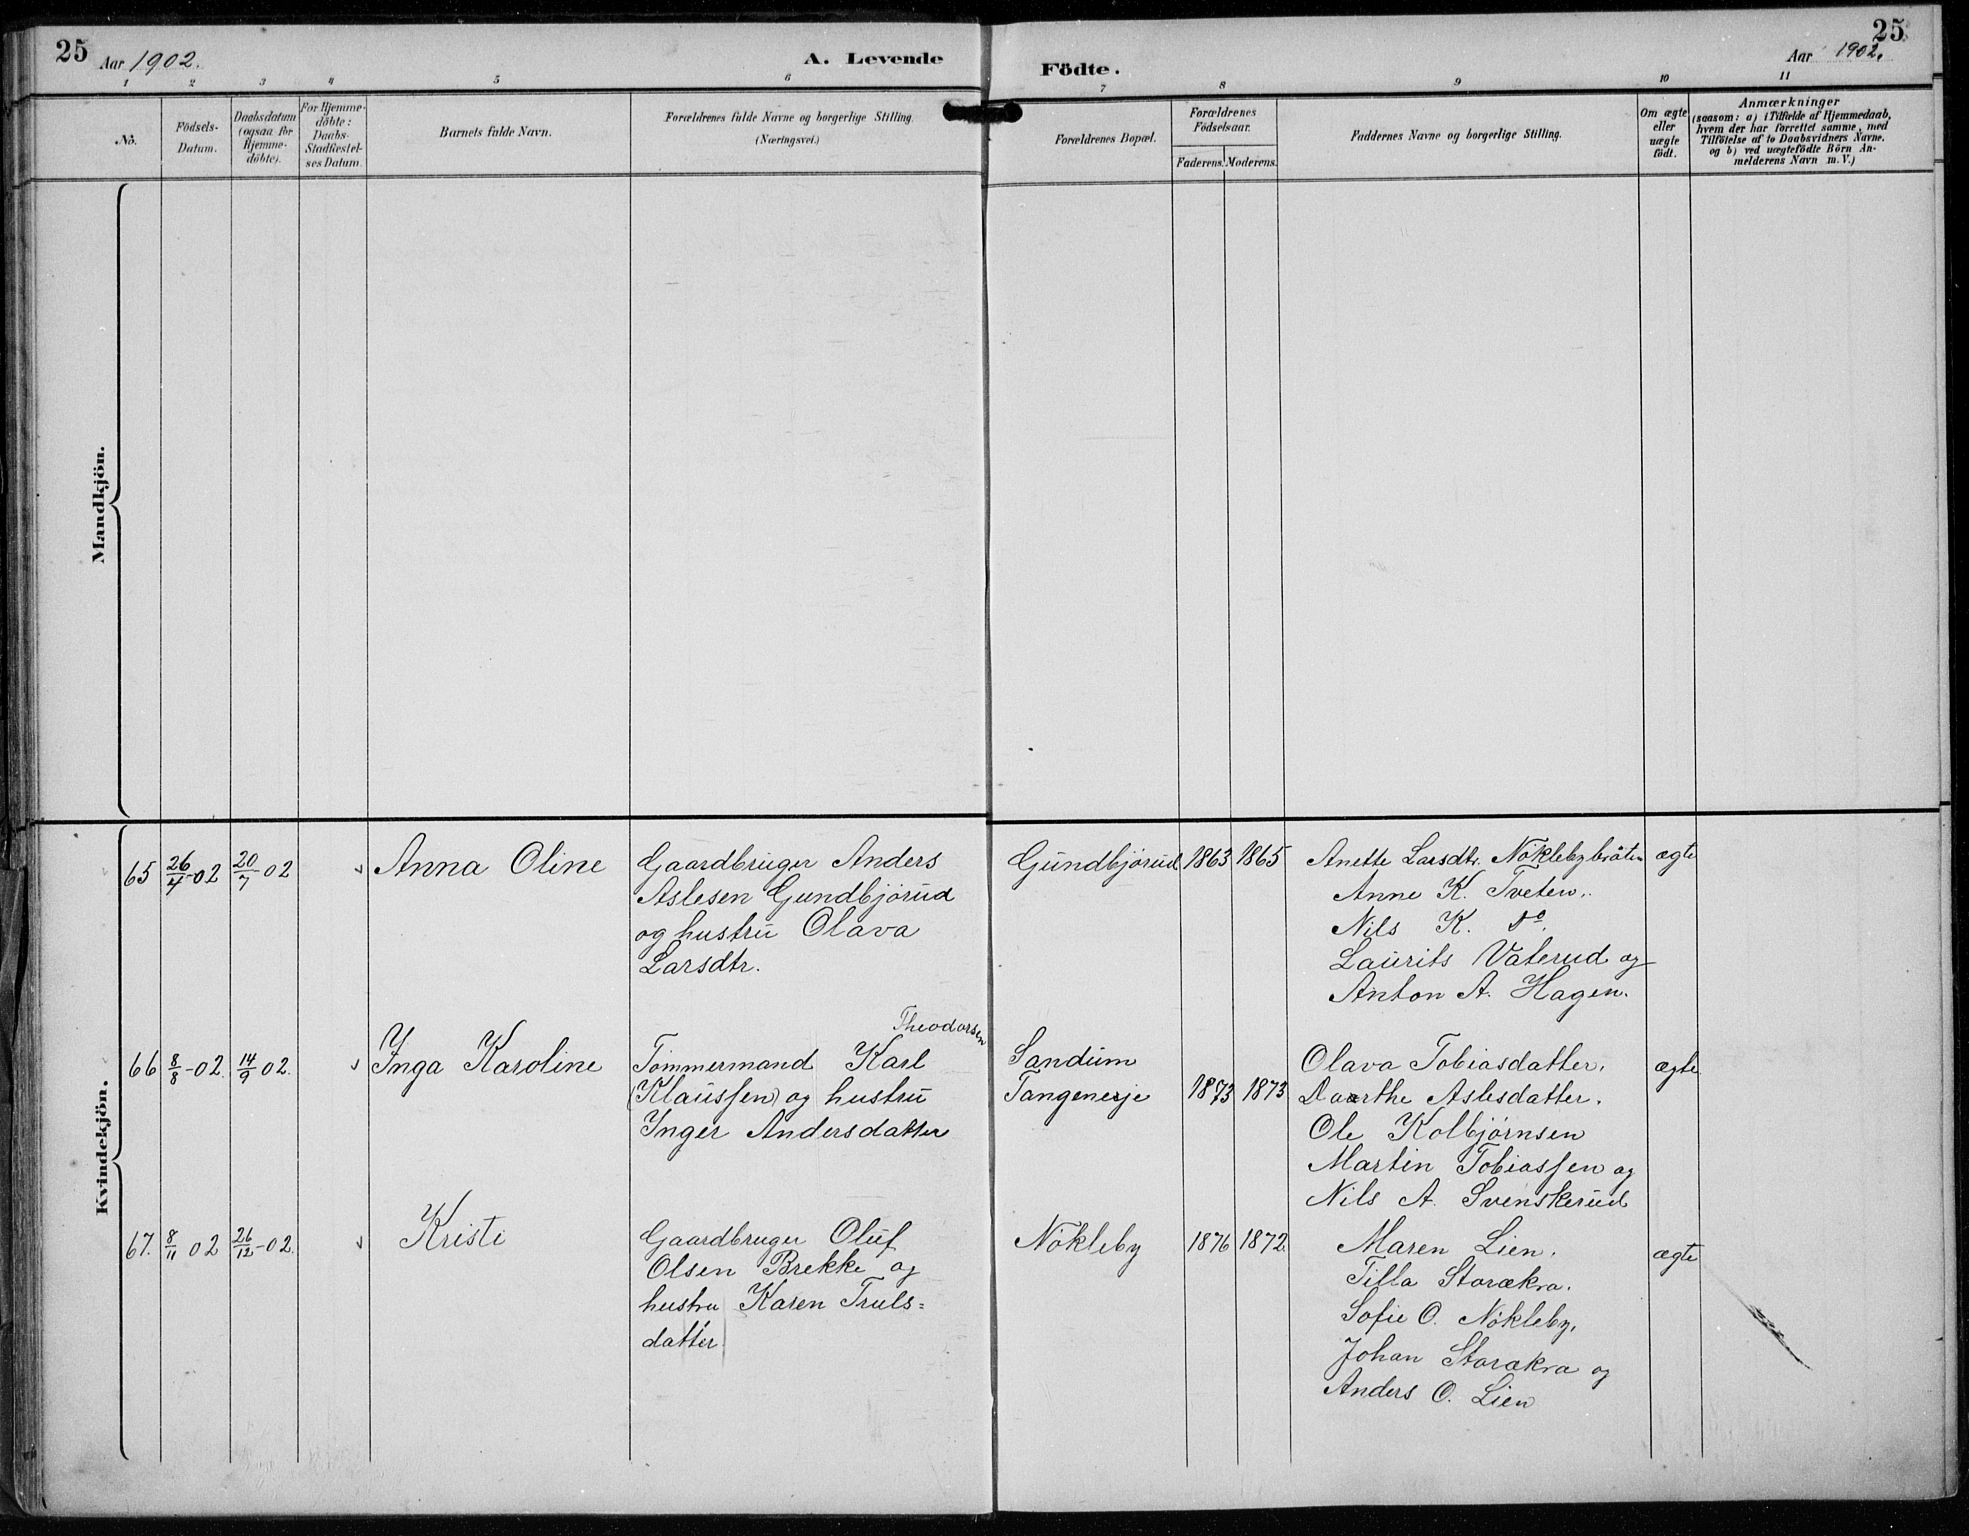 25
Aar 1902.
A. Levende
Födte.
25
Aar 1902.
1 2 3 4 5 6 7 8 9 10 11
No.
Födsels-
Datum.
Daabsdatum
(ogsaa for
Hjemme-
döbte).
For Hjemme-
döbte:
Daabs-
Stadfæstel-
ses Datum.
Barnets fulde Navn.
Forældrenes fulde Navne og borgerlige Stilling.
(Næringsvei.)
Forældrenes Bopæl.
Forældrenes
Födselsaar.
Faderens. Moderens.
Faddernes Navne og borgerlige Stilling.
Om ægte
eller
uægte
födt.
Anmærkninger
(saasom: a) i Tilfælde af Hjemmedaab,
hvem der har forrettet samme, med
Tilföielse af to Daabsvidners Navne.
og b) ved uægtefödte Börn An-
melderens Navn m. V.)
Mandkjön.
Kvindekjön.
65 26/4-02 20/7-02 Anna Oline
Gaardbruger Anders
Aslesen Gundbjørud
og hustru Olava
Larsdtr.
Gundbjørud 1863 1865
Anette Larsdtr. Nöklebybråten
Anne K. Tveten.
Nils K. do.
Laurits Vaterud og
Anton A. Hagen.
ægte
66 8/8-02. 14/9 02. Inga Karoline
Theodorsen
Tømmermand Karl
(Klaussen) og hustru
Inger Andersdatter
Sandum
Tangeneje 1873 1873
Olava Tobiasdatter.
Daarthe Aslesdatter.
Ole Kolbjørnsen
Martin Tobiassen og
Nils A. Svenskerud
ægte
67. 8/11 02 26/12-02. Kristi
Gaardbruger Oluf
Olsen Brekke og
hustru Karen Truls=
datter
Nökleby 1876 1872.
Maren Lien.
Tilla Storækra.
Sofie O. Nökleby.
Johan Storækra og
Anders O. Lien
ægte